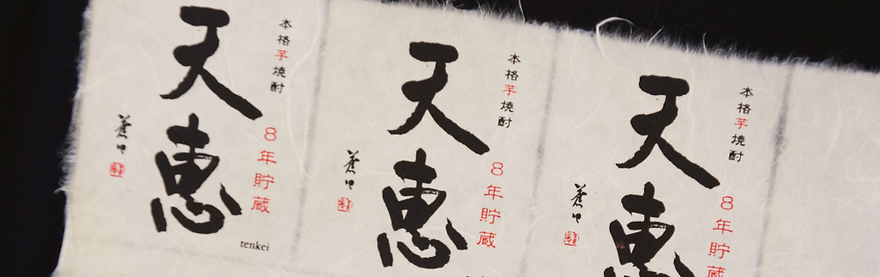 本格芋焼酎
天恵
8年貯蔵
tenkei
本格芋焼酎
天恵
8年貯蔵
本格芋焼酎
天恵
8年貯蔵